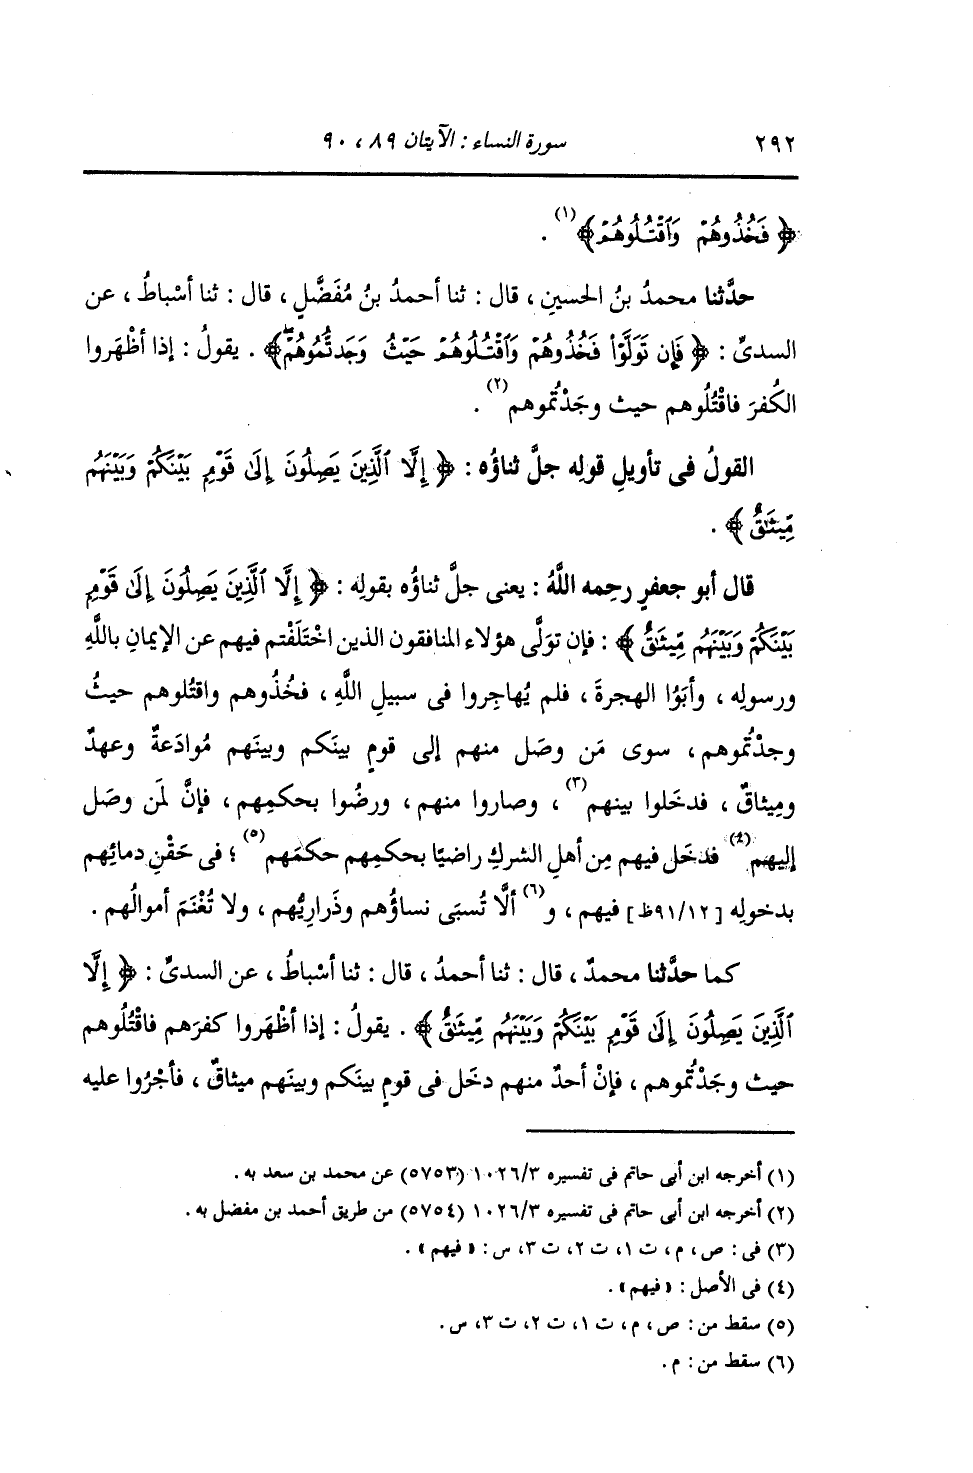 ٢٩٢ سورة النساء : الآيتان ٨٩ ، ٩٠
﴿ فَخُذُوهُمْ وَاقْتُلُوهُمْ ﴾(١) .
حدَّثنا محمدُ بنُ الحسينِ ، قال : ثنا أحمدُ بنُ مُفَضَّلٍ ، قال : ثنا أسْباطُ ، عن
السدىِّ : ﴿ فَإِن تَوَلَّوْا فَخُذُوهُمْ وَاقْتُلُوهُمْ حَيْثُ وَجَدتُّمُوهُمْ ﴾ . يقولُ : إذا أظْهَروا
الكُفرَ فاقْتُلُوهم حيث وجَدْتُموهم(٢) .
القولُ فى تأويلِ قولِه جلَّ ثناؤُه : ﴿ إِلَّا ٱلَّذِينَ يَصِلُونَ إِلَىٰ قَوْمٍ بَيْنَكُمْ وَبَيْنَهُم
مِّيثَٰقٌ ﴾ .
قال أبو جعفرٍ رحِمه اللَّهُ : يعنى جلَّ ثناؤُه بقولِه : ﴿ إِلَّا ٱلَّذِينَ يَصِلُونَ إِلَىٰ قَوْمٍ
بَيْنَكُمْ وَبَيْنَهُم مِّيثَٰقٌ ﴾ : فإن تولَّى هؤلاء المنافقون الذين اخْتَلَفْتم فيهم عن الإيمانِ باللَّهِ
ورسولِه ، وأبَوُا الهجرةَ ، فلم يُهاجِروا فى سبيلِ اللَّهِ ، فخُذُوهم واقتُلوهم حيثُ
وجدْتُموهم ، سوى مَن وصَل منهم إلى قومٍ بينَكم وبينَهم مُوادَعةٌ وعهدٌ
ومِيثاقٌ ، فدخَلوا بينهم(٣) ، وصاروا منهم ، ورضُوا بحكمِهم ، فإنَّ لمَن وصَل
إليهم(٤) فدخَل فيهم مِن أهلِ الشركِ راضيًا بحكمِهم حكمَهم(٥) ؛ فى حَقْنِ دمائِهم
بدخولِه [٩١/١٢ظ] فيهم ، و(٦) ألَّا تُسبَى نساؤُهم وذَرارِيُّهم ، ولا تُغْنَمَ أموالُهم .
كما حدَّثنا محمدٌ ، قال : ثنا أحمدُ ، قال : ثنا أسْباطُ ، عن السدىِّ : ﴿ إِلَّا
ٱلَّذِينَ يَصِلُونَ إِلَىٰ قَوْمٍ بَيْنَكُمْ وَبَيْنَهُم مِّيثَٰقٌ ﴾ . يقولُ : إذا أظْهَروا كفرَهم فاقْتُلُوهم
حيث وجَدْتُموهم ، فإنْ أحدٌ منهم دخَل فى قومٍ بينَكم وبينَهم ميثاقٌ ، فأجْرُوا عليه
(١) أخرجه ابن أبى حاتم فى تفسيره ١٠٢٦/٣ (٥٧٥٣) عن محمد بن سعد به .
(٢) أخرجه ابن أبى حاتم فى تفسيره ١٠٢٦/٣ (٥٧٥٤) من طريق أحمد بن مفضل به .
(٣) فى : ص ، م ، ت ١، ت ٢، ت ٣، س : « فيهم » .
(٤) فى الأصل : « فيهم » .
(٥) سقط من : ص ، م ، ت ١، ت ٢، ت ٣، س .
(٦) سقط من : م .